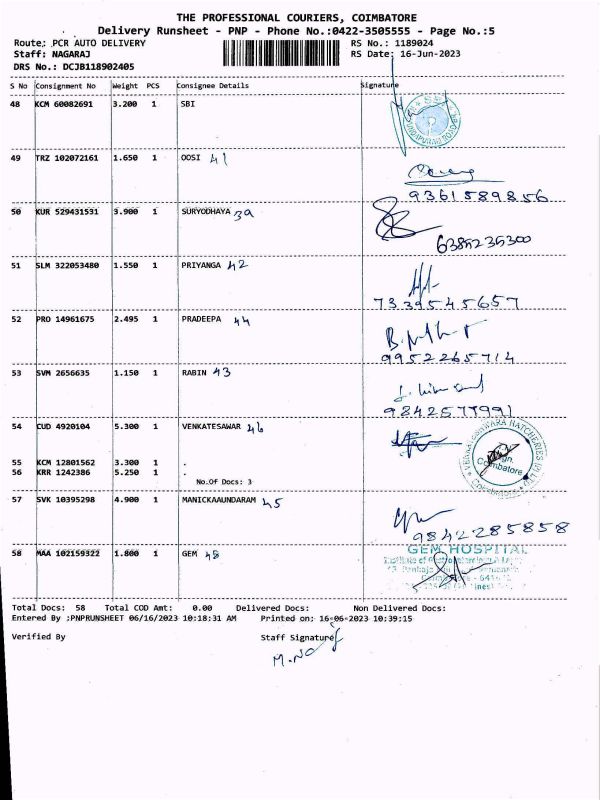 THE PROFESSIONAL COURIERS, COIMBATORE
Delivery Runsheet - PNP - Phone No.:0422-3505555 - Page No.:5
Route: PCR AUTO DELIVERY RS No.: 1189024
Staff: NAGARAJ RS Date: 16-Jun-2023
DRS No.: DCJB118902405
S No Consignment No Weight PCS Consignee Details Signature
48 KCM 60082691 3.200 1 SBI
49 TRZ 102072161 1.650 1 OOSI 41
9361589856
50 KUR 529431531 3.900 1 SURYODHAYA 39
6385235300
51 SLM 322053480 1.550 1 PRIYANGA 42
7339545657
52 PRO 14961675 2.495 1 PRADEEPA 44
9952265714
53 SVM 2656635 1.150 1 RABIN 43
9842577991
54 CUD 4920104 5.300 1 VENKATESWAR 46
VENKATESHWARA HATCHERIES (P) LTD
Coimbatore
55 KCM 12801562 3.300 1 .
56 KRR 1242386 5.250 1 .
No.Of Docs: 3
57 SVK 10395298 4.900 1 MANICKAAUNDARAM 45
9842285858
58 MAA 102159322 1.800 1 GEM 48
GEM HOSPITAL
Total Docs: 58 Total COD Amt: 0.00 Delivered Docs: Non Delivered Docs:
Entered By :PNPRUNSHEET 06/16/2023 10:18:31 AM Printed on: 16-06-2023 10:39:15
Verified By Staff Signature